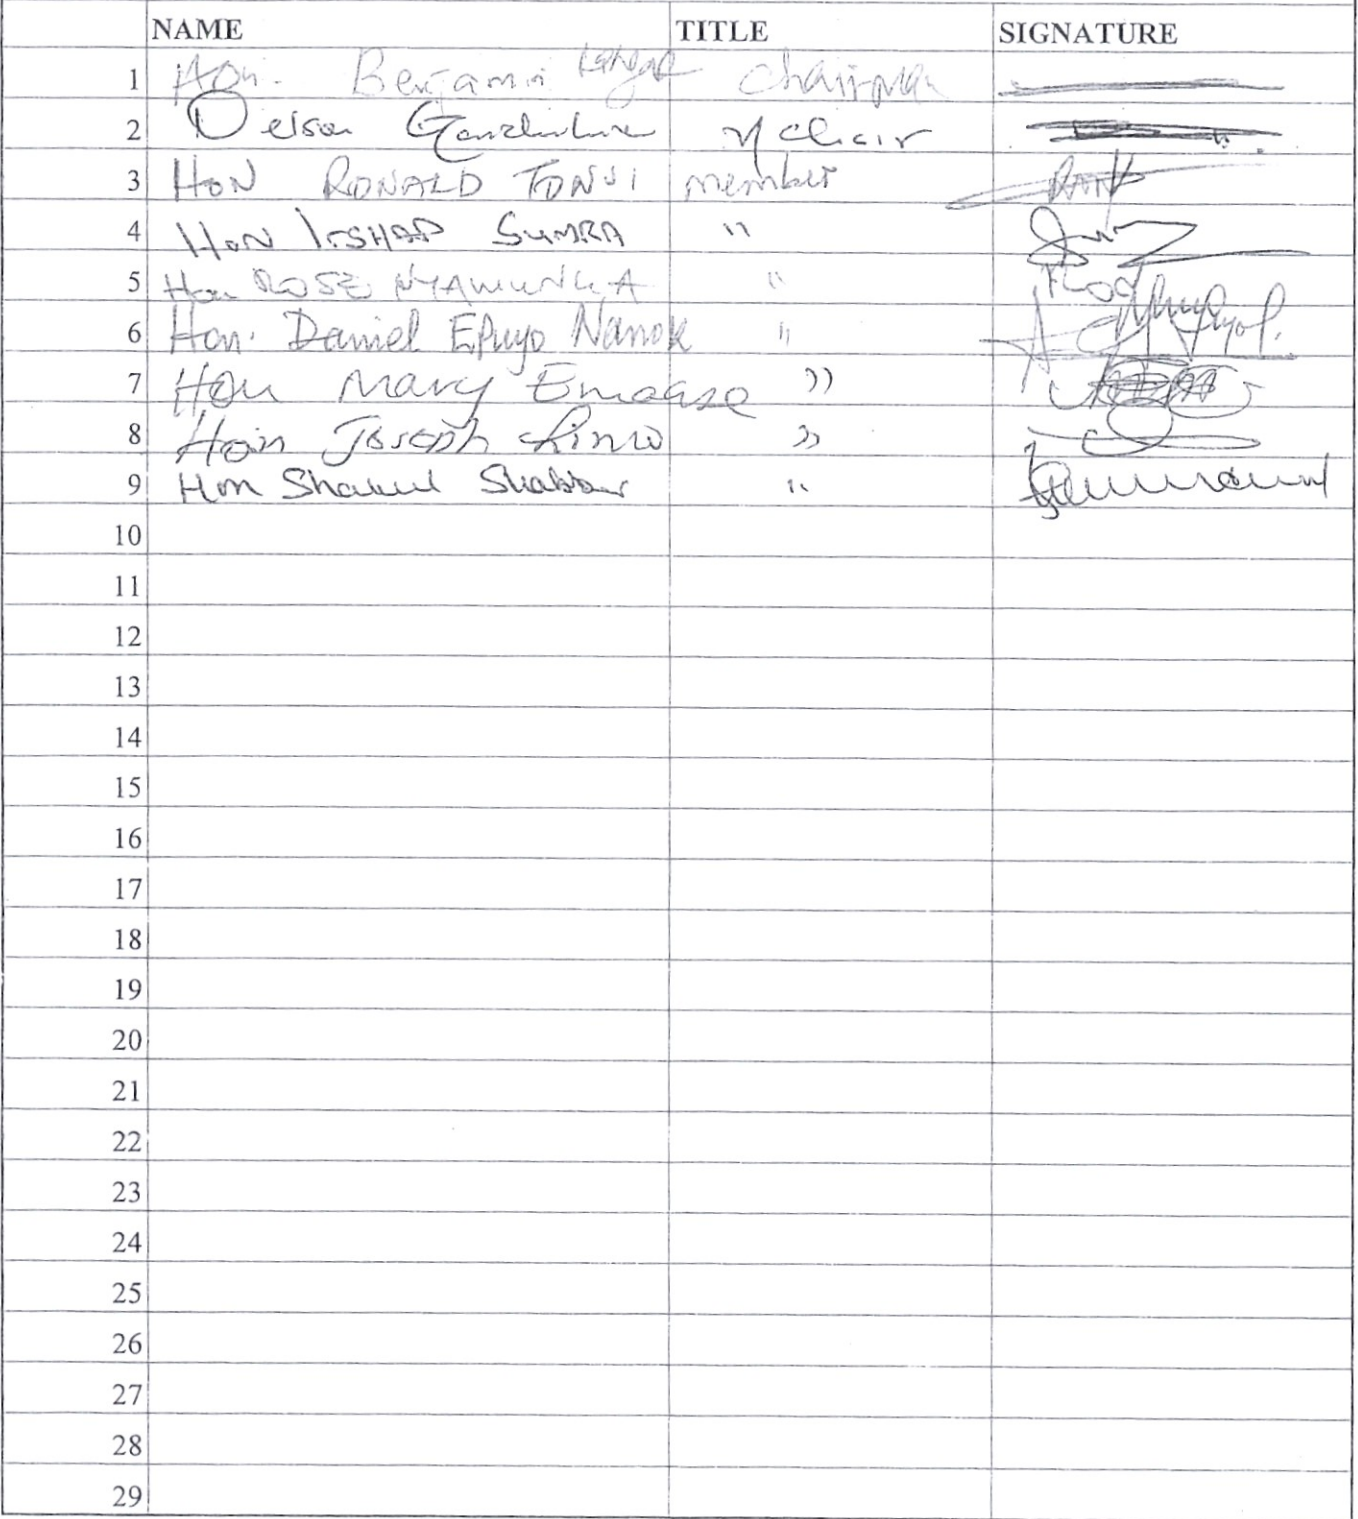 NAME TITLE SIGNATURE
1 Hon. Benjamin Langat Chairman
2 Nelson Gaichuhie V/Chair
3 HON RONALD TONUI member
4 HON IRSHAD SUMRA "
5 Hon ROSE NYAMUNGA "
6 Hon. Daniel Epuyo Nanok "
7 Hon Mary Emaase "
8 Hon Joseph Limo "
9 Hon Shakeel Shabbir "
10
11
12
13
14
15
16
17
18
19
20
21
22
23
24
25
26
27
28
29